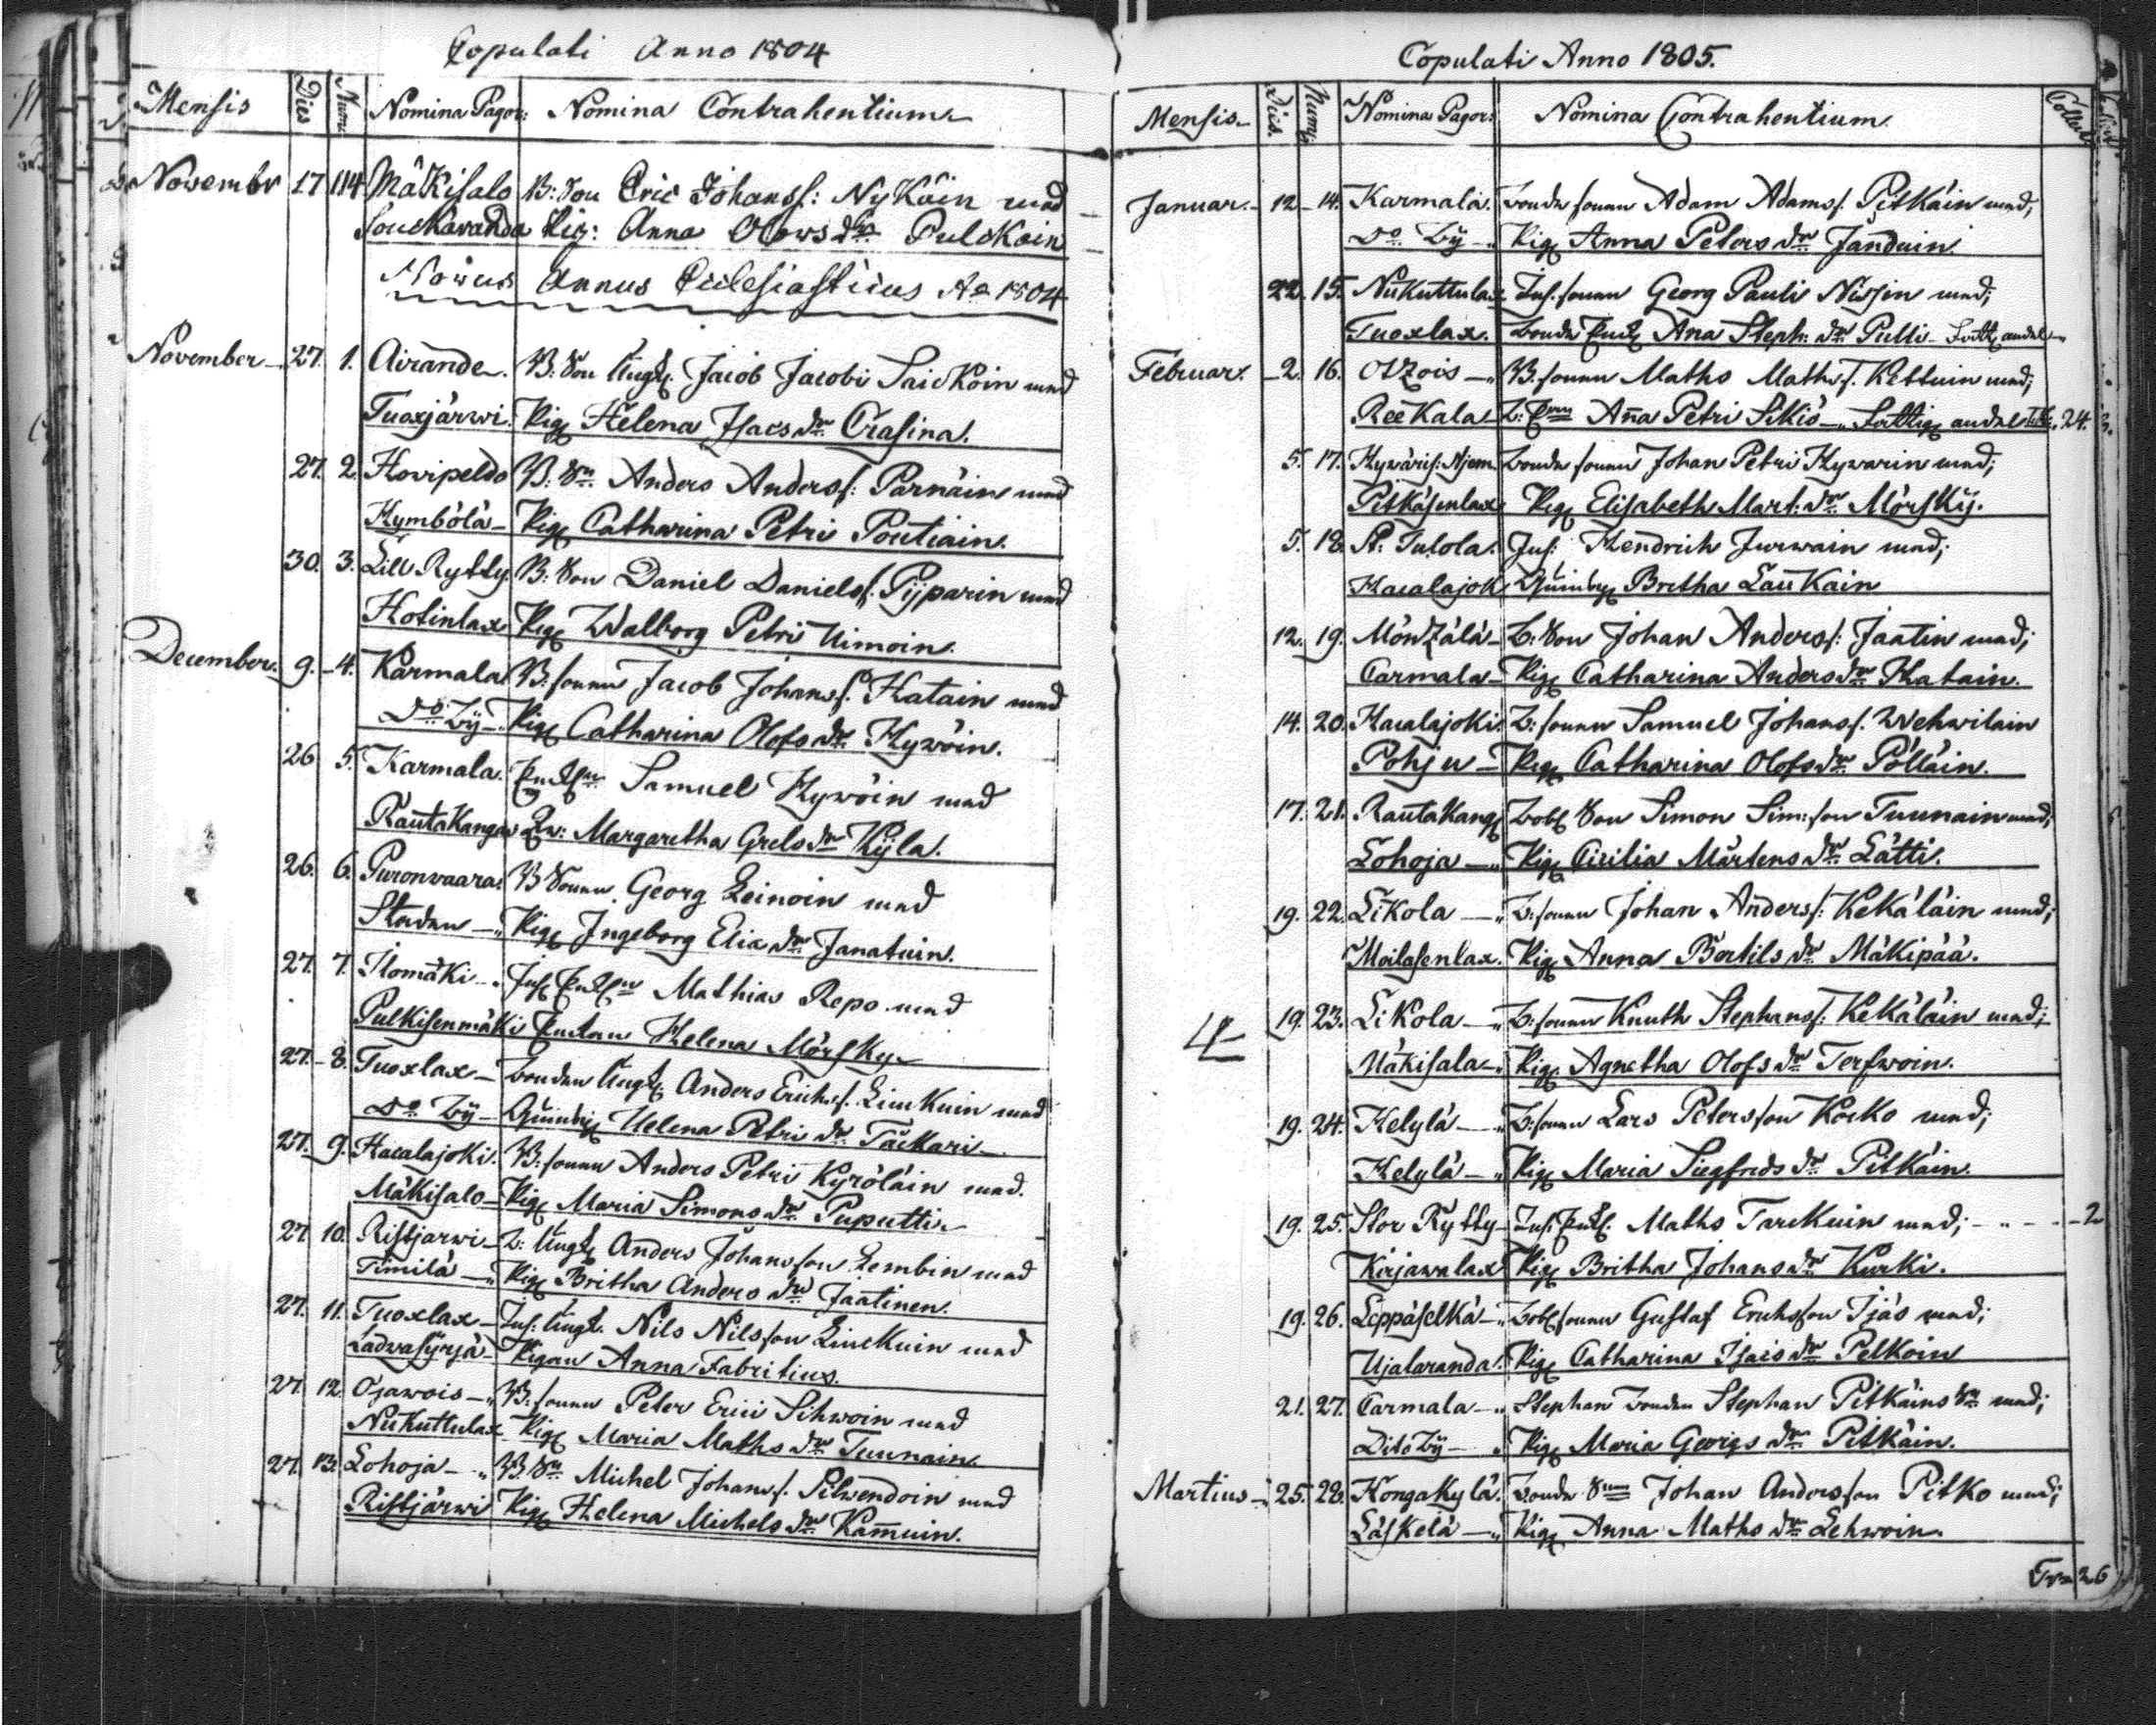 Copulati Anno 1804
Mensis Dies Num: Nomina Pagor: Nomina Contrahentium
Novembr 17 114 Mäkisalo B: Son Eric Johanss: Nykäin med
Souckaranda Pig: Anna Olows dr Pulckoin
Novus Annus Ecclesiasticus Ao 1804
November 27. 1. Airande B: Son Jacob Jacobi Saickoin med
Tuoxjärwi Pig Helena Isacs dr Orasina.
27. 2. Hovipeldo B: Sn Anders Anderss: Parnäin med
Kymbölä Pig Catharina Petri Pontiain.
30. 3. Lill Rytty B: Son Daniel Daniels Pijparin med
Hotinlax Pig Walborg Petri Uimoin.
December 9. 4. Karmala B: sonen Jacob Johanss. Hatain med
Do By Pig Catharina Olofs dr Hywöin.
26. 5. Karmala. Samuel Hywöin med
Rautakangas Margaretha Grels dr Kijla.
26. 6. Puronvaara B Sonen Georg Leinoin med
Staden Pig Ingeborg Elia dr Janatuin.
27. 7. Ilomäki Mathias Repo med
Pulkisenmäki Enkan Helena Mörsky
27. 8. Tuoxlax bonden Anders Erichs. Linckuin med
Do By Helena Petri dr Tackari
27. 9. Hacalajoki. B: sonen Anders Petri Kyröläin med.
Mäkisalo Pig Maria Simons dr Puputti
27. 10. Ristjarwi B: Anders Johansson Lembin med
Timilä Pig Britha Anders dr Jäatinen.
27. 11. Tuoxlax Nils Nilsson Linckuin med
Ladwasyrjä Pigan Anna Fabritius.
27. 12. Ojawois B: sonen Peter Erici Sihwoin med
Nukuttulax Pig Maria Maths dr Tuunain
27. 13. Lohoja B. Sn Michel Johanss. Silwendoin med
Ristjärwi Pig Helena Michels dr Kamuin.
Copulati Anno 1805.
Mensis Dies. Num: Nomina Pagor: Nomina Contrahentium. Collect
Januar. 12. 14. Karmala. bonde sonen Adam Adams. Pitkäin med;
Do By Pig Anna Peters dr Janduin.
22. 15. Nukuttulax Inh. sonen Georg Pauli Nissin med;
Tuoxlax. bonde Ana Steph: dr Pulli
Februar. 2. 16. Otzois B. sonen Maths Maths s. Kettuin med;
Reekala Aña Petri Sikiö 24.
5. 17. Hywäris: Njem. bonde sonen Johan Petri Hywarin med;
Pitkäsenlax Pig Elisabeth Mart: dr Mörsky.
5. 18. St: Tulola. Inh: Hendrich Jurwain med;
Hacalajok Britha Laukain
12. 19. Möntzälä B: Son Johan Anderss: Jaatin med;
Carmala Pig Catharina Anders dr Hatain.
14. 20. Hacalajoki B: sonen Samuel Johans s. Wehwilain
Pohju Pig Catharina Olofs dr Pölläin.
17. 21. Rautakang Son Simon Sim: son Tuunain med;
Lohoja Pig Cicilia Mårtens dr Lätti.
19. 22. Likola B: sonen Johan Anderss: Kekäläin med;
Moilasenlax. Pig Anna Bertils dr Mäkipää.
19. 23. Likola B: sonen Knuth Stephans s: Kekäläin med;
Mäkisala Pig Agnetha Olofs dr Terfwoin.
19. 24. Helylä B: sonen Lars Petersson Kocko med;
Helylä Pig Maria Siegfreds dr Pitkäin.
19. 25. Stor Rytty Maths Tarckuin med; 2
Kirjawalax Pig Britha Johans dr Kurki.
19. 26. Leppäselkä sonen Gustaf Erichsson Ijäs med;
Ujalaranda. Pig Catharina Isacs dr Pelkoin
21. 27. Carmala Stephan bonden Stephan Pitkäins Sn med;
Dito By Pig Maria Georgs dr Pitkäin.
Martius 25. 28. Kongakylä. bonde Son Johan Andersson Pitko med;
Läskelä Pig Anna Maths dr Lehwoin.
26